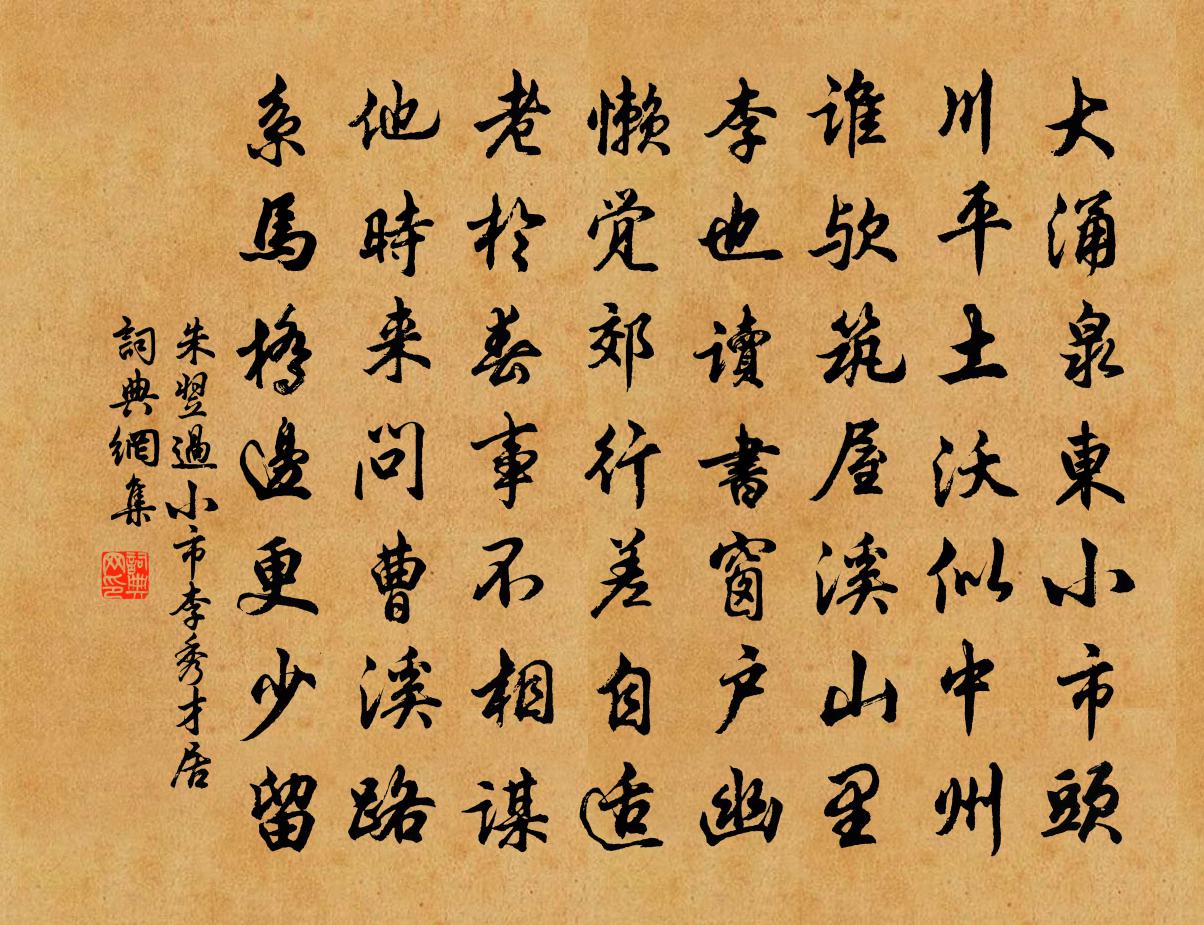 大涌泉東小市頭
川平土沃似中州
谁欤筑屋溪山里
李也讀書窗户幽
懒觉郊行差自适
老於春事不相謀
他時来问曹溪路
系馬橋邊更少留
朱翌過小市李秀才居
詞典網集
詞典网印